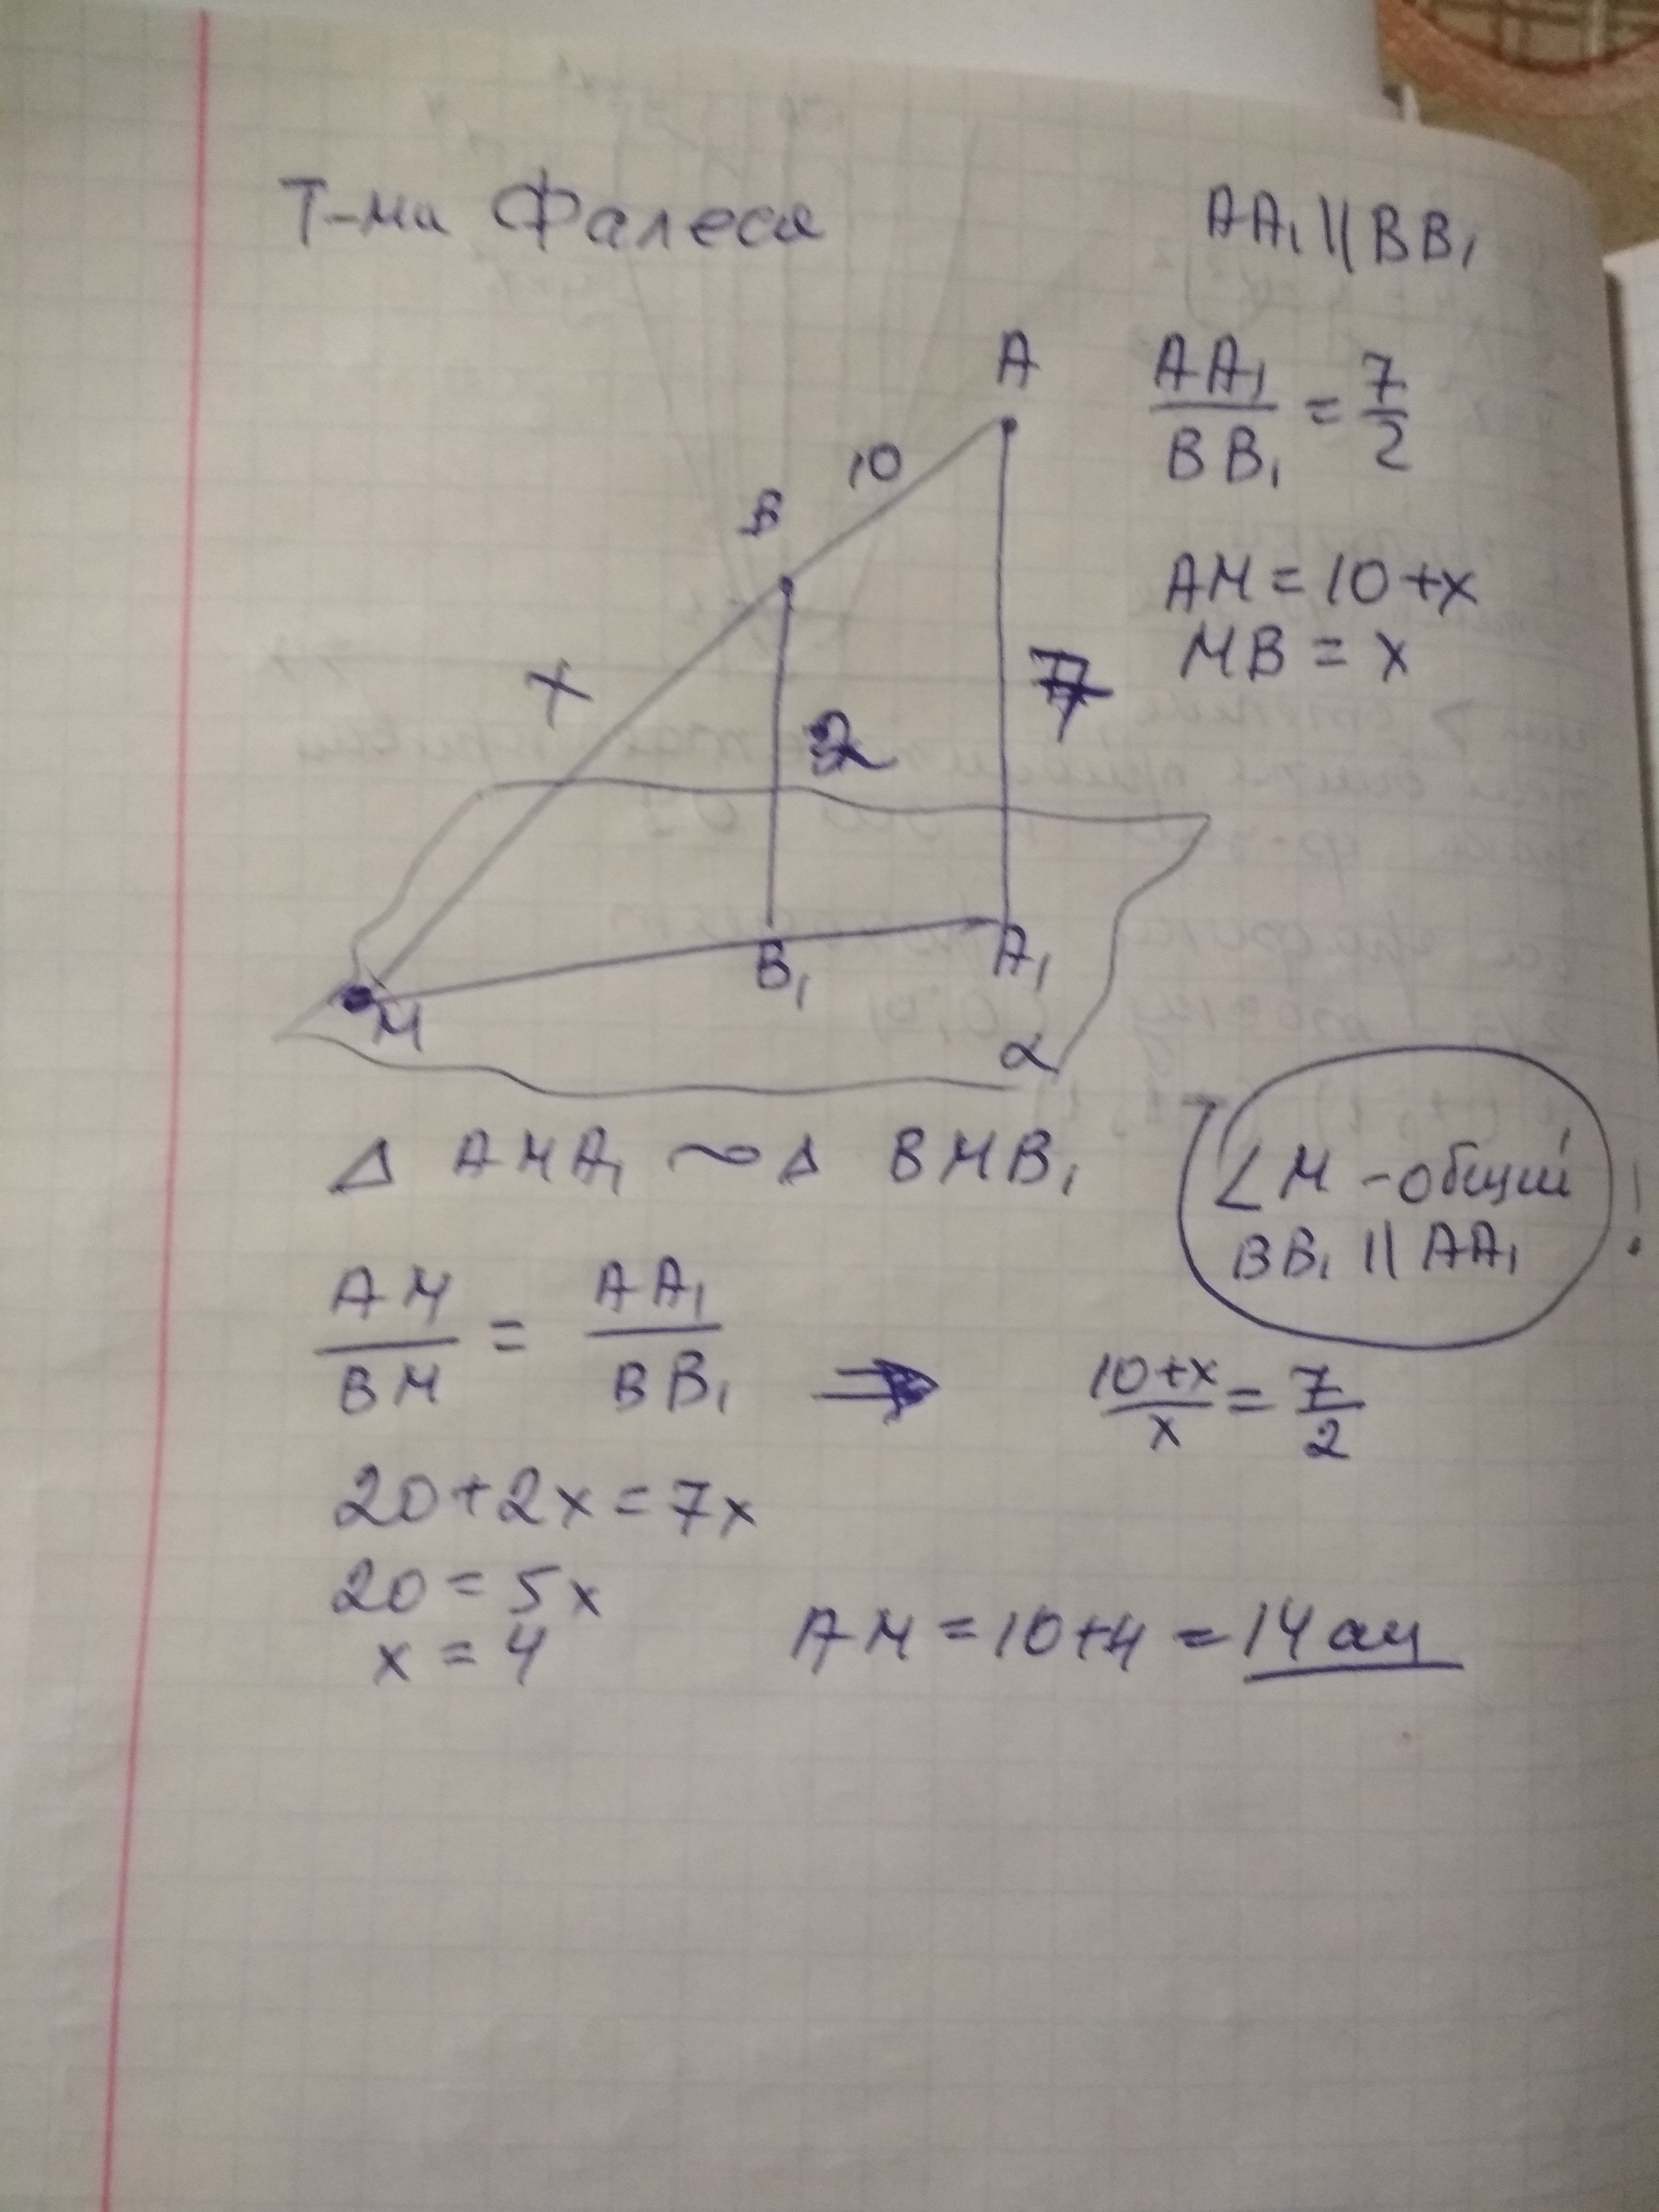 Т-ма Фалеса
AA₁ || BB₁
A
AA₁/BB₁ = 7/2
10
B
AM = 10+x
MB = x
x
2
7
B₁
A₁
M
α
Δ AMA₁ ~ Δ BMB₁
∠M - общий
BB₁ || AA₁
!
AM/BM = AA₁/BB₁ ⇒ (10+x)/x = 7/2
20+2x=7x
20=5x
x=4
AM = 10+4 = 14 см